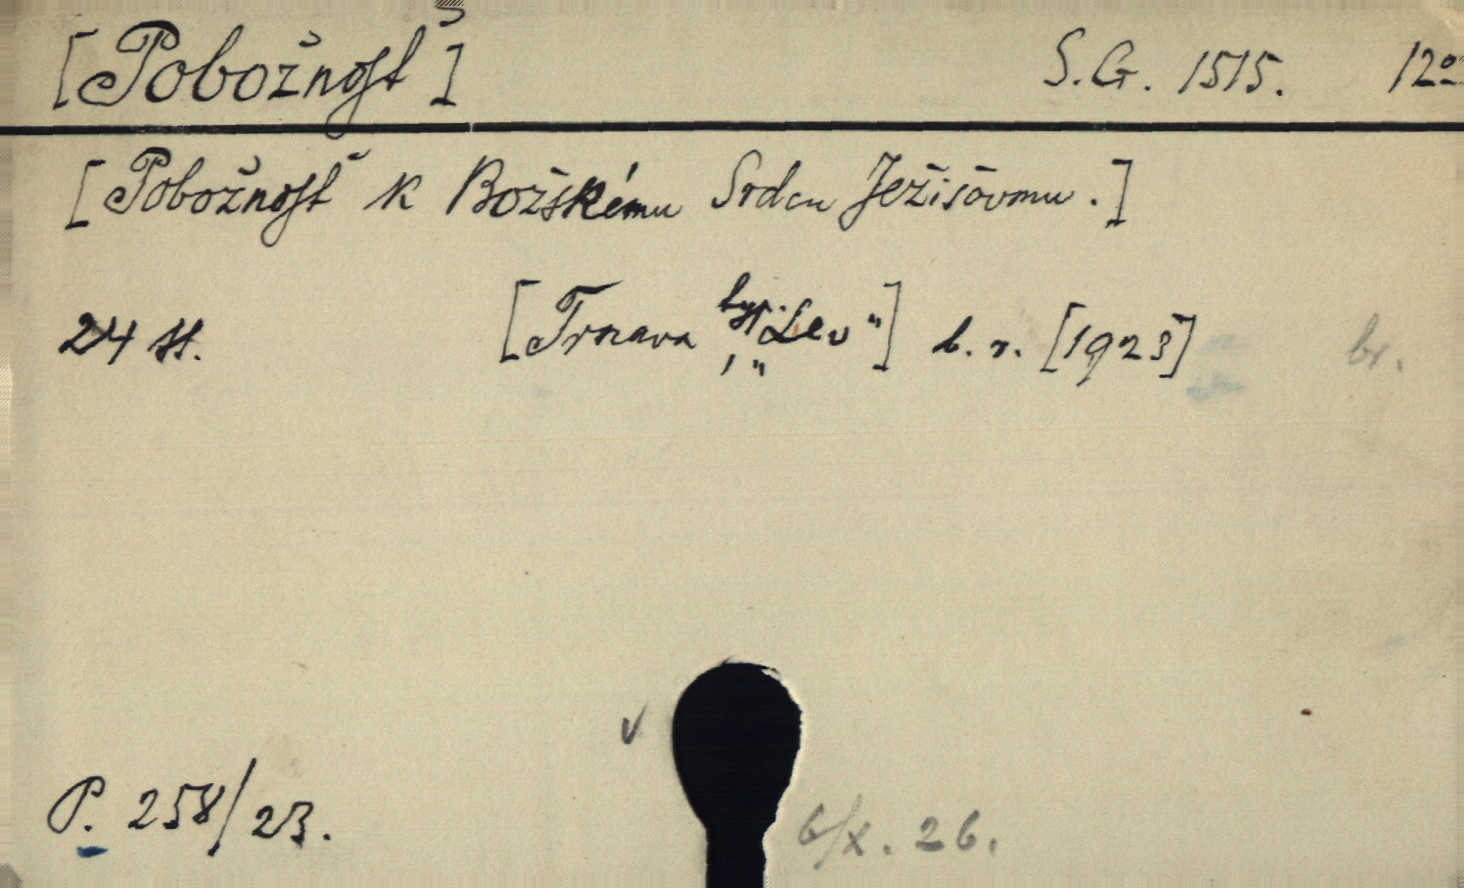 [Pobožnosť] S.G. 1515. 12º
[Pobožnosť k Božskému Srdcu Ježišovmu.]
24 st. [Trnava, typ. „Lev"] b. r. [1923] br.
v
P. 258/23. 6/X. 26.